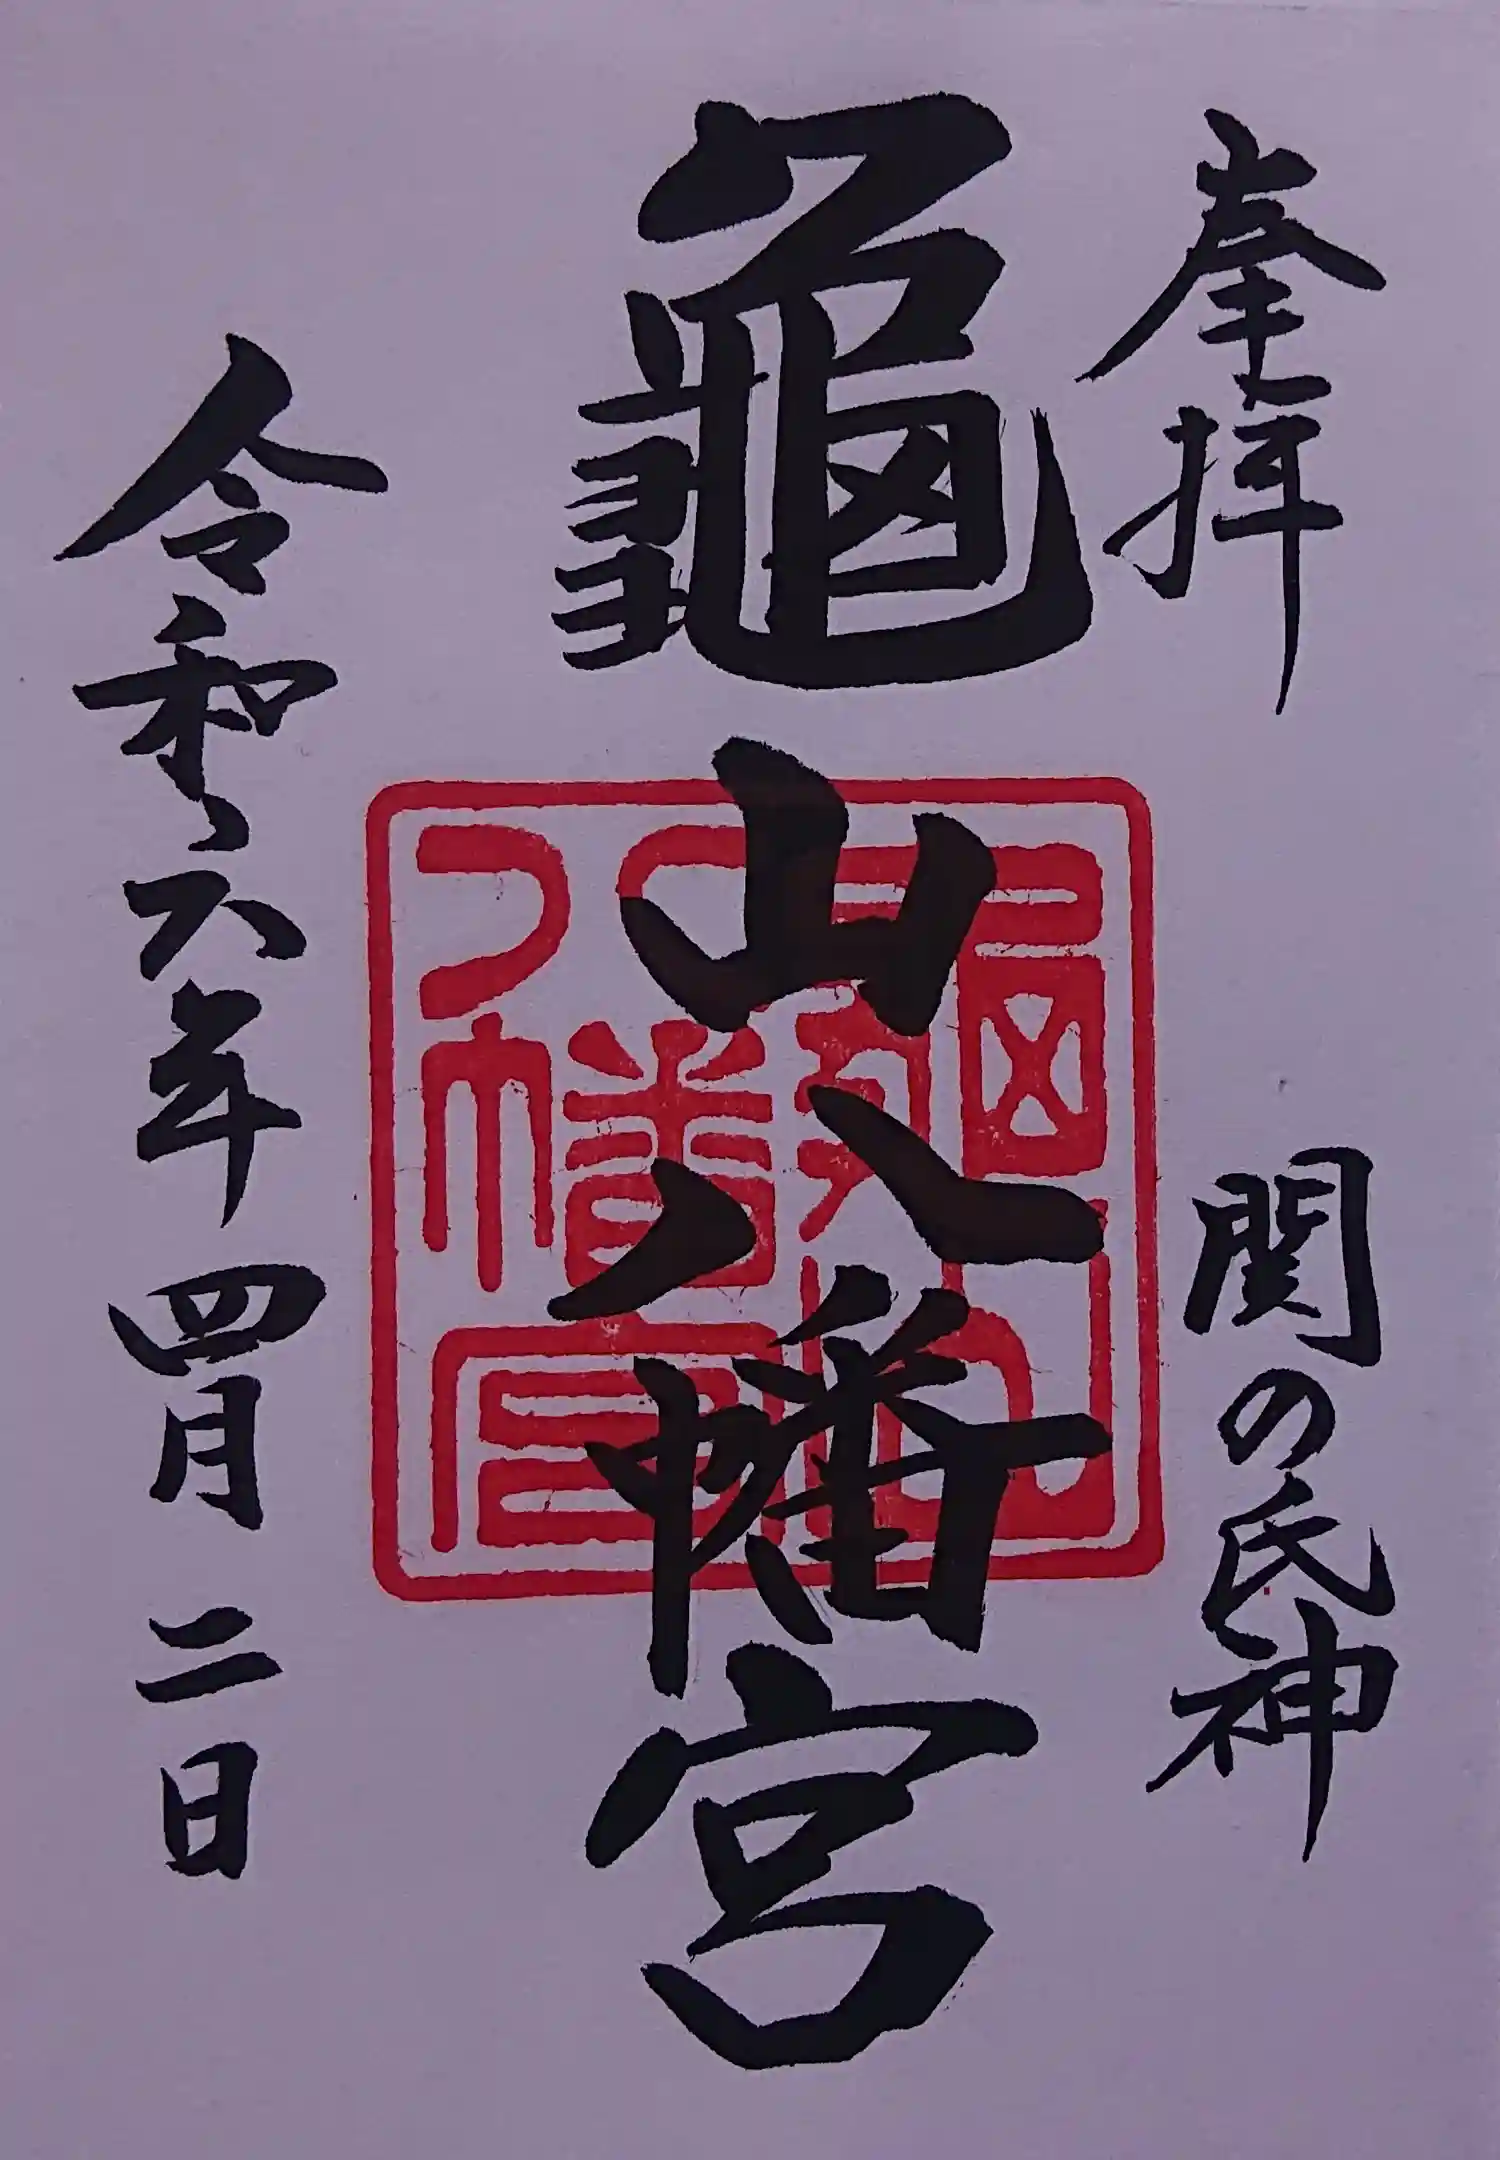 奉拝
関の氏神
龜山八幡宮
令和六年四月二日
龜山八幡宮